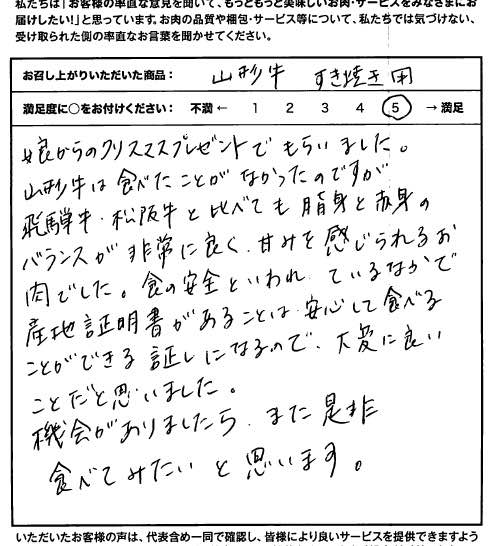 私たちは「お客様の率直な意見を聞いて、もっともっと美味しいお肉・サービスをみなさまにお
届けしたい！」と思っています。お肉の品質や梱包・サービス等について、私たちでは気づけない、
受け取られた側の率直なお言葉を聞かせてください。
お召し上がりいただいた商品： 山形牛 すき焼き用
満足度に○をお付けください： 不満 ← 1 2 3 4 5 → 満足
娘からのクリスマスプレゼントでもらいました。
山形牛は食べたことがなかったのですが
飛騨牛・松阪牛と比べても脂身と赤身の
バランスが非常に良く、甘みを感じられるお
肉でした。食の安全といわれているなかで
産地証明書があることは、安心して食べる
ことができる証しになるので、大変に良い
ことだと思いました。
機会がありましたら、また是非
食べてみたいと思います。
いただいたお客様の声は、代表含め一同で確認し、皆様により良いサービスを提供できますよう